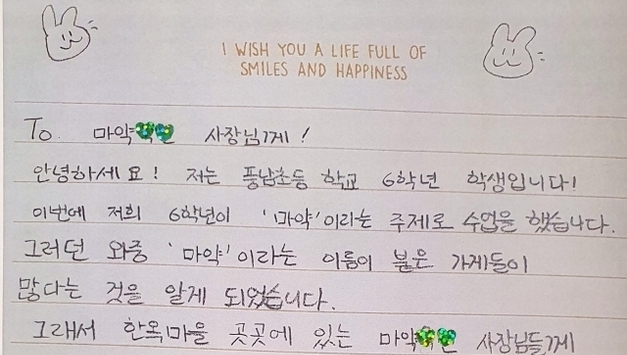 I WISH YOU A LIFE FULL OF
SMILES AND HAPPINESS
To. 마약 사장님께!
안녕하세요! 저는 풍남초등 학교 6학년 학생입니다!
이번에 저희 6학년이 '마약'이라는 주제로 수업을 했습니다.
그러던 와중 '마약'이라는 이름이 붙은 가게들이
많다는 것을 알게 되었습니다.
그래서 한옥마을 곳곳에 있는 마약 사장님들께